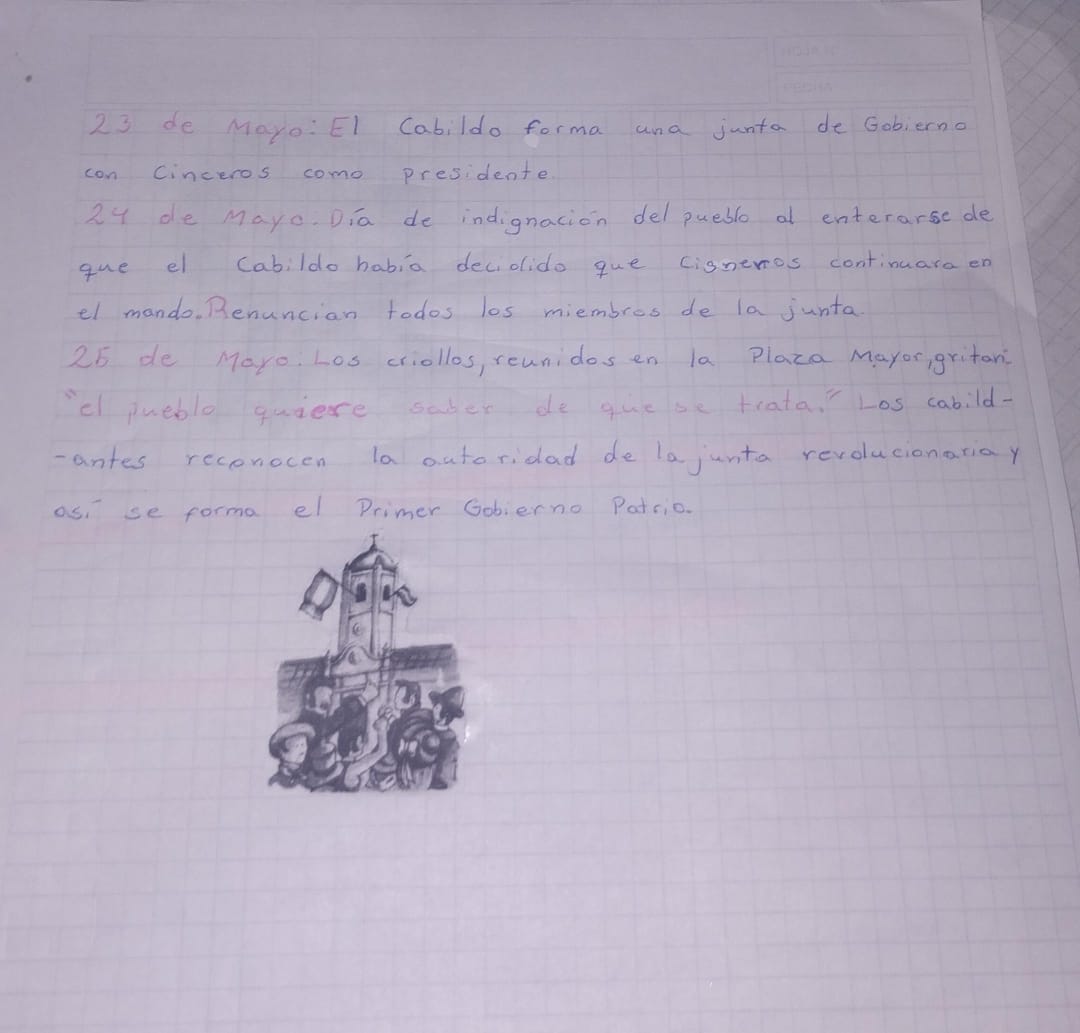 HOJA N°
FECHA
23 de Mayo: El Cabildo forma una junta de Gobierno
con Cinceros como presidente.
24 de Mayo. Día de indignación del pueblo al enterarse de
que el Cabildo había decidido que Cisneros continuara en
el mando. Renuncian todos los miembros de la junta.
25 de Mayo. Los criollos, reunidos en la Plaza Mayor, gritan:
"el pueblo quiere saber de que se trata." Los cabild-
-antes reconocen la autoridad de la junta revolucionaria y
así se forma el Primer Gobierno Patrio.